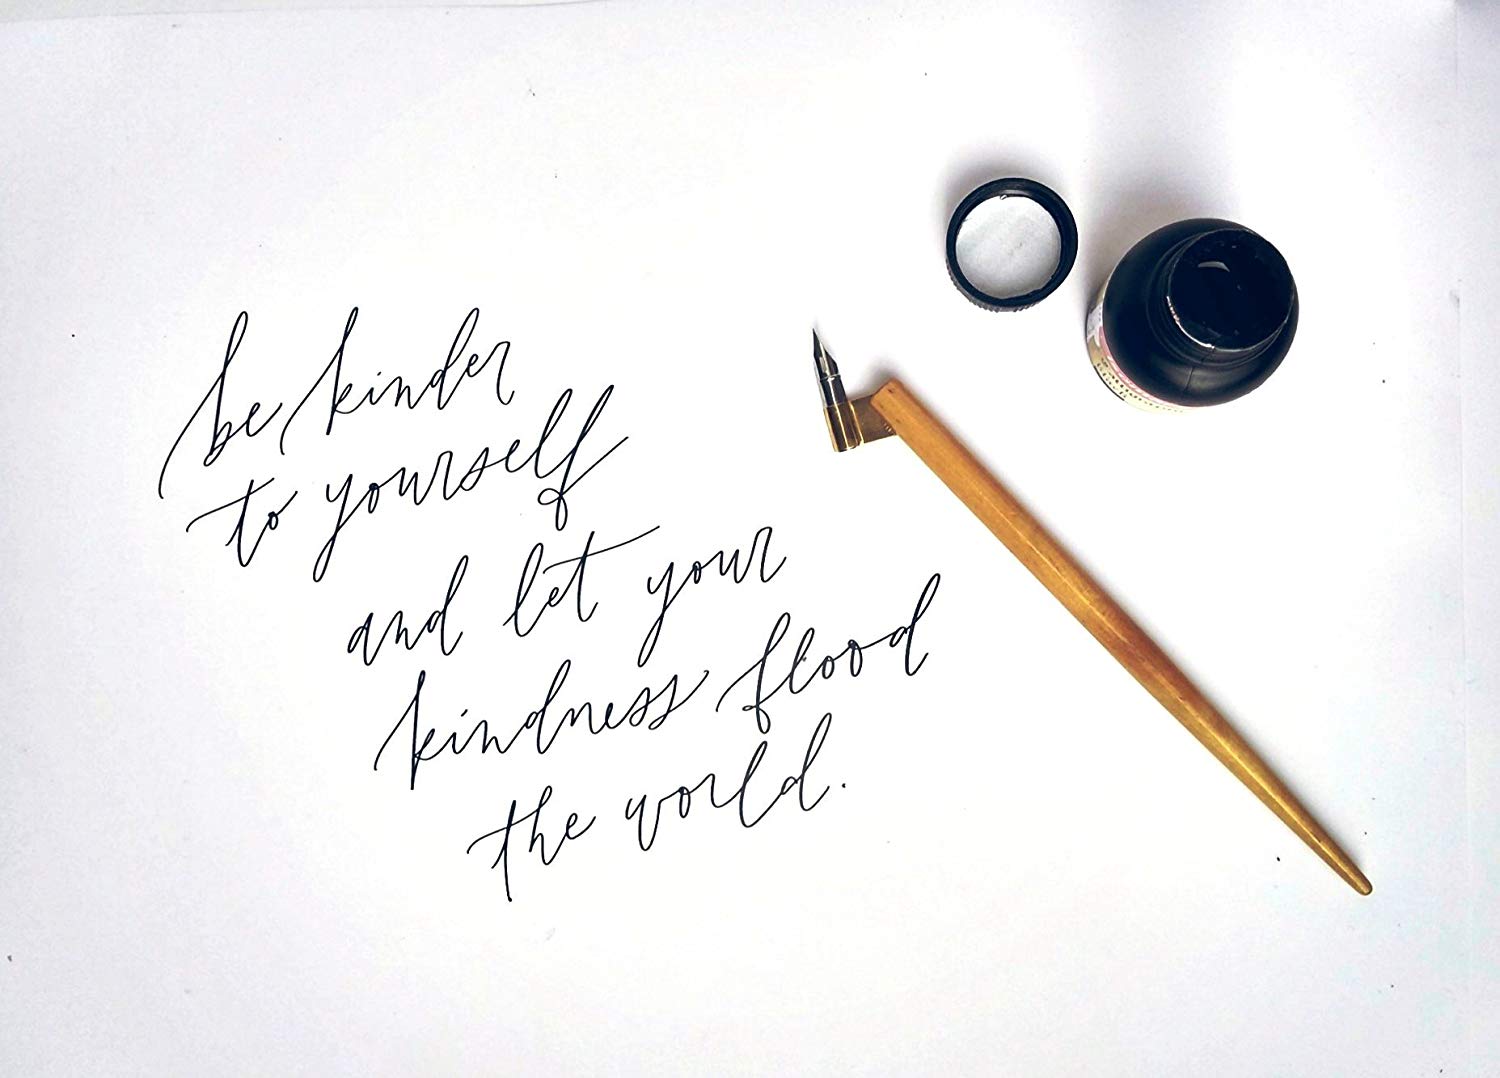 be kinder
to yourself
and let your
kindness flood
the world.